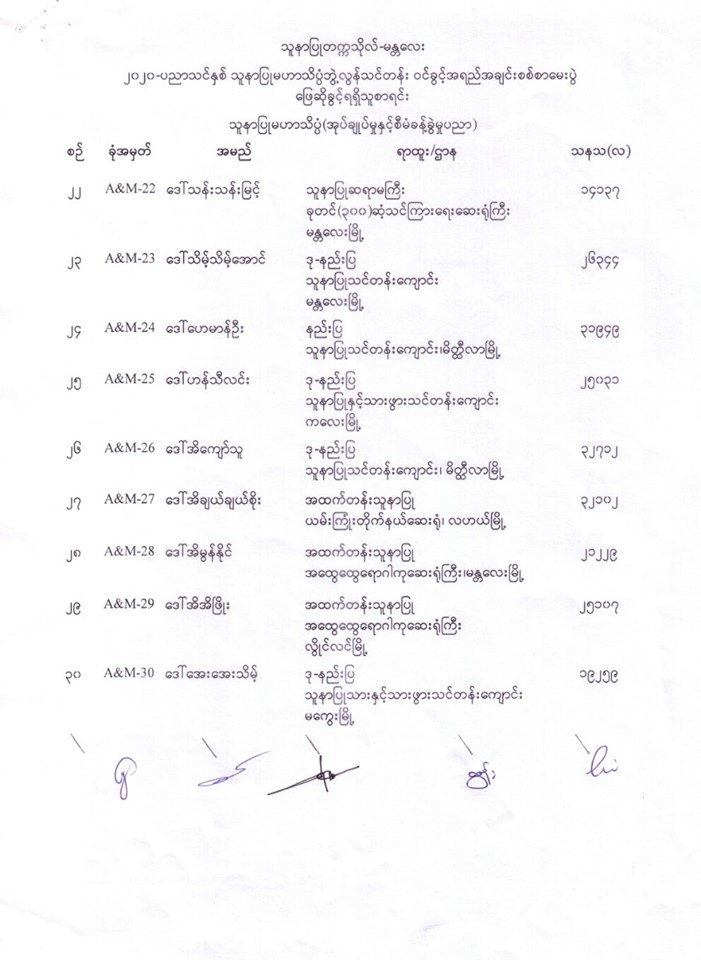 သူနာပြုတက္ကသိုလ်-မန္တလေး
၂၀၂၀-ပညာသင်နှစ် သူနာပြုမဟာသိပ္ပံဘွဲ့လွန်သင်တန်း ဝင်ခွင့်အရည်အချင်းစစ်စာမေးပွဲ
ဖြေဆိုခွင့်ရရှိသူစာရင်း
သူနာပြုမဟာသိပ္ပံ(အုပ်ချုပ်မှုနှင့်စီမံခန့်ခွဲမှုပညာ)
စဉ် ခုံအမှတ် အမည် ရာထူး/ဌာန သနသ(လ)
၂၂ A&M-22 ဒေါ်သန်းသန်းမြင့် သူနာပြုဆရာမကြီး ၁၄၁၃၇
ခုတင်(၃၀၀)ဆံ့သင်ကြားရေးဆေးရုံကြီး
မန္တလေးမြို့
၂၃ A&M-23 ဒေါ်သိမ့်သိမ့်အောင် ဒု-နည်းပြ ၂၆၃၄၄
သူနာပြုသင်တန်းကျောင်း
မန္တလေးမြို့
၂၄ A&M-24 ဒေါ်ဟေမာန်ဦး နည်းပြ ၃၁၉၄၉
သူနာပြုသင်တန်းကျောင်း၊မိတ္ထီလာမြို့
၂၅ A&M-25 ဒေါ်ဟန်သီလင်း ဒု-နည်းပြ ၂၅၀၃၁
သူနာပြုနှင့်သားဖွားသင်တန်းကျောင်း
ကလေးမြို့
၂၆ A&M-26 ဒေါ်အိကျော်သူ ဒု-နည်းပြ ၃၂၇၁၂
သူနာပြုသင်တန်းကျောင်း၊ မိတ္ထီလာမြို့
၂၇ A&M-27 ဒေါ်အိချယ်ချယ်စိုး အထက်တန်းသူနာပြု ၃၂၁၀၂
ယမ်းကြုံးတိုက်နယ်ဆေးရုံ၊ လဟယ်မြို့
၂၈ A&M-28 ဒေါ်အိမွန်နိုင် အထက်တန်းသူနာပြု ၂၁၂၂၉
အထွေထွေရောဂါကုဆေးရုံကြီး၊မန္တလေးမြို့
၂၉ A&M-29 ဒေါ်အိအိဖြိုး အထက်တန်းသူနာပြု ၂၅၁၀၇
အထွေထွေရောဂါကုဆေးရုံကြီး
လွိုင်လင်မြို့
၃၀ A&M-30 ဒေါ်အေးအေးသိမ့် ဒု-နည်းပြ ၁၉၂၅၉
သူနာပြုသားနှင့်သားဖွားသင်တန်းကျောင်း
မကွေးမြို့